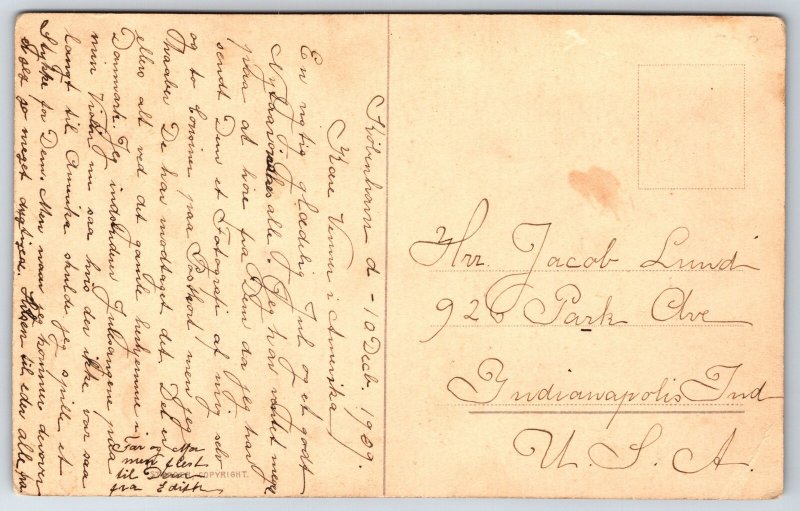 København d - 10 Decb. 1909.
Kære Venner i Amerika
En rigtig glædelig Jul og et godt
Nytaar ønskes alle. Jeg har ventet meget
paa at høre fra Dem da jeg har
sendt Dem et Fotografi af mig selv
og to Cousiner paa Postkort men jeg
Haaber De har modtaget det. Det er
ellers alt ved det gamle herhjemme i
Danmark. Jeg indstuderer Julesangene paa
min Violin nu saa hvis der ikke var saa
langt til Amerika skulde jeg spille et
Stykke for Dem. Men naar jeg kommer derover
saa meget dygtigere. Hilsen til eder alle fra
Far og Mor
men flest
til Dem
fra Edith
COPYRIGHT.
Hrr. Jacob Lund
920 Park Ave
Indianapolis Ind
U. S. A.